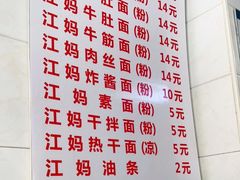 江妈牛肚面(粉) 14元
江妈牛筋面(粉) 14元
江妈肉丝面(粉) 14元
江妈炸酱面(粉) 10元
江妈素面(粉) 5元
江妈干拌面(粉) 5元
江妈热干面(凉) 5元
江妈油条 2元